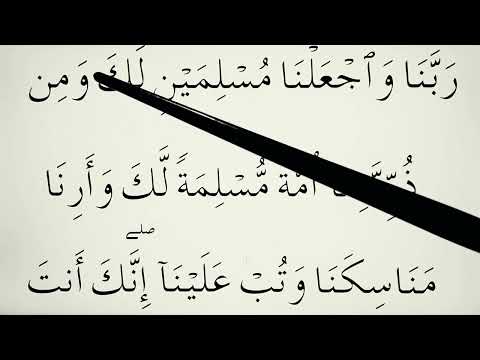 رَبَّنَا وَٱجْعَلْنَا مُسْلِمَيْنِ لَكَ وَمِن
أُمَّةً مُّسْلِمَةً لَّكَ وَأَرِنَا
مَنَاسِكَنَا وَتُبْ عَلَيْنَآ ۖ إِنَّكَ أَنتَ